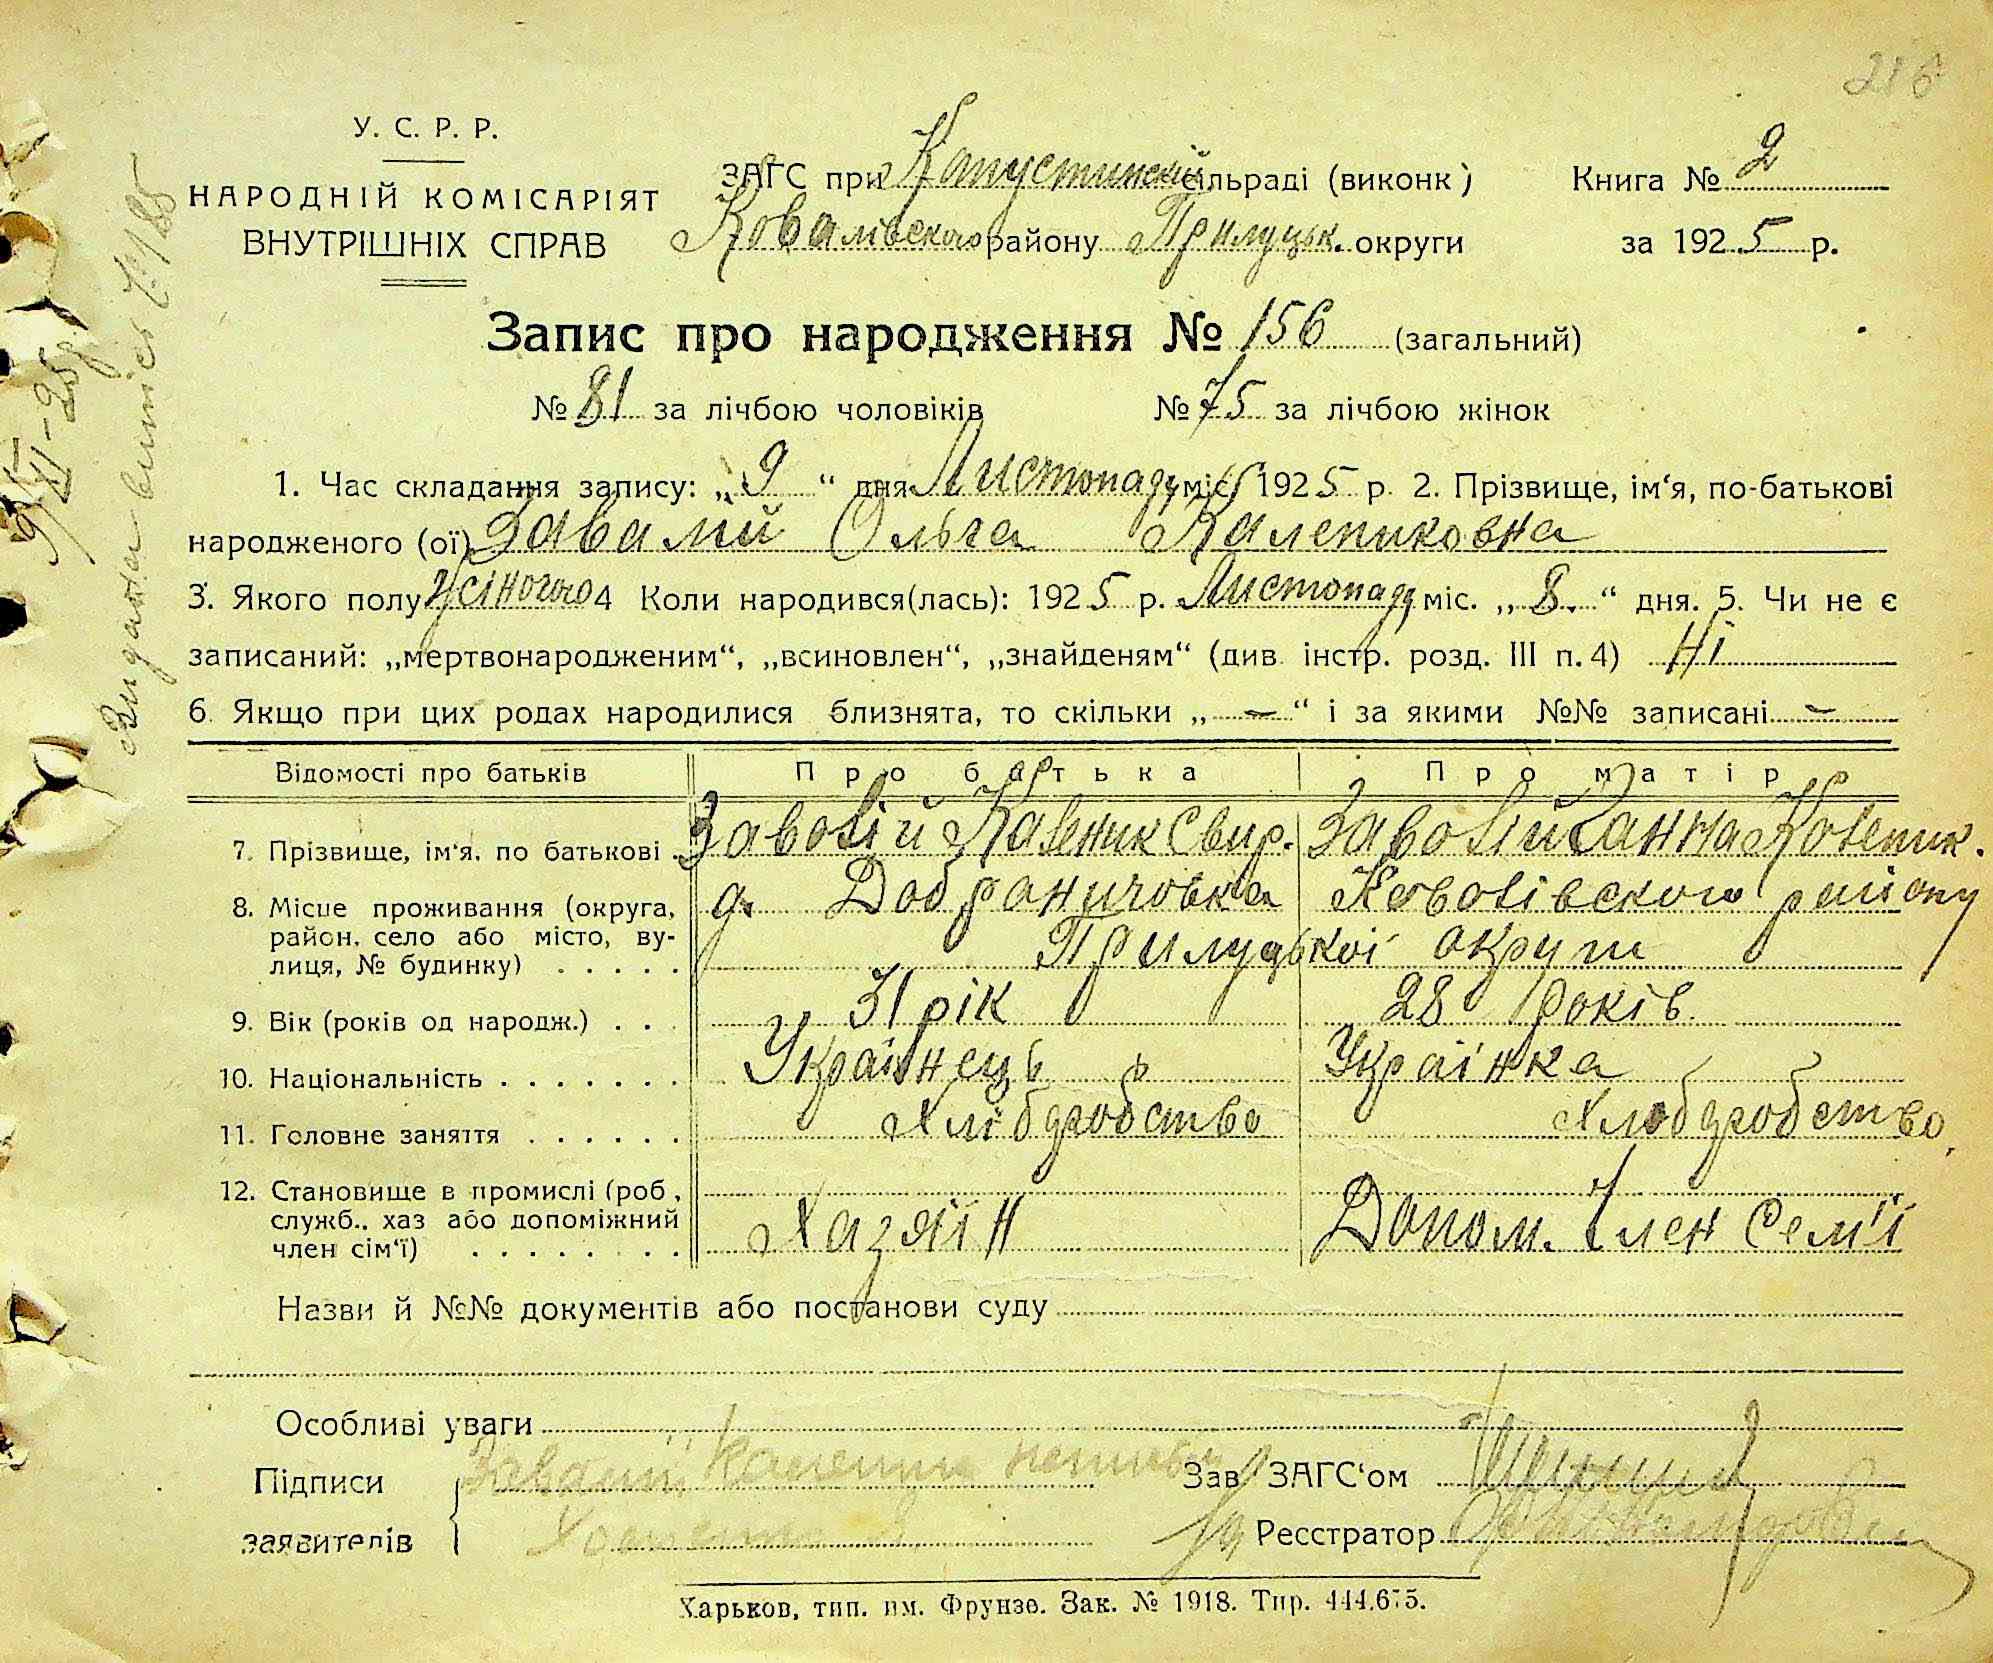 216
У. С. Р. Р.
НАРОДНІЙ КОМІСАРІЯТ
ВНУТРІШНІХ СПРАВ
ЗАГС при Капустинскій сільраді (виконк)
Ковалівского району Прилуцьк. округи
Книга № 2
за 1925 р.
Видана випись
Запис про народження № 156 (загальний)
№ 81 за лічбою чоловіків № 75 за лічбою жінок
1. Час складання запису: „ 9 “ дня Листопаду міс 1925 р. 2. Прізвище, ім‘я, по-батькові
народженого (ої) Завалій Ольга Калениковна
3. Якого полу жіночого 4 Коли народився(лась): 1925 р. Листопаду міс. „ 8. “ дня. 5. Чи не є
записаний: „мертвонародженим“, „всиновлен“, „знайденям“ (див. інстр. розд. III п. 4) Ні
6. Якщо при цих родах народилися близнята, то скільки „ — “ і за якими №№ записані —
Відомості про батьків Про батька Про матір
7. Прізвище, ім‘я. по батькові Завалій Каленик Свир. Завалій Ганна
8. Місце проживання (округа, район, село або місто, вулиця, № будинку) д. Добраничовка Ковалівского району
Прилуцької округи
9. Вік (років од народж.) 31 рік 28 років
10. Національність Українець Українка
11. Головне заняття Хлібдробство Хлібдробство
12. Становище в промислі (роб., служб., хаз або допоміжний член сім‘ї) Хазяїн Допом. Член Семʼї
Назви й №№ документів або постанови суду
Особливі уваги
Підписи заявителів Завалий Каленик
Зав ЗАГС‘ом
Реєстратор
Харьков, тип. им. Фрунзе. Зак. № 1918. Тир. 444.675.